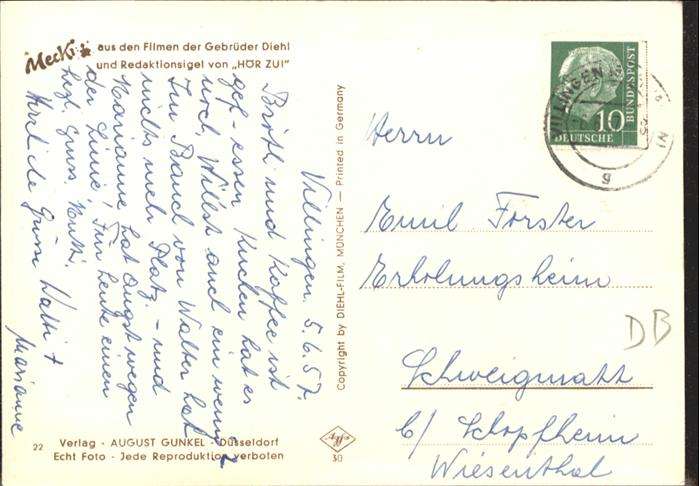 Mecki aus den Filmen der Gebrüder Diehl
und Redaktionsigel von „HÖR ZU!"
Villingen. 5.6.57.
Brötl. und Kaffee ist
gef-essen Kuchen hat es
noch. Willst auch ein wenig?
Im Bauch von Walter hat
nichts mehr Platz – und
Marianne hat Angst wegen
der Linie. Für heute einen
hzl. Gruss. Mutti.
Herzliche Grüsse Walti +
Marianne
Copyright by DIEHL-FILM, MÜNCHEN — Printed in Germany
Verlag - AUGUST GUNKEL - Düsseldorf
22 Echt Foto - Jede Reproduktion verboten
Agfa
30
DEUTSCHE
BUNDESPOST
10
VILLINGEN
g
Herrn
Emil Forster
Erholungsheim
Schweigmatt
b/ Schopfheim
Wiesenthal
DB